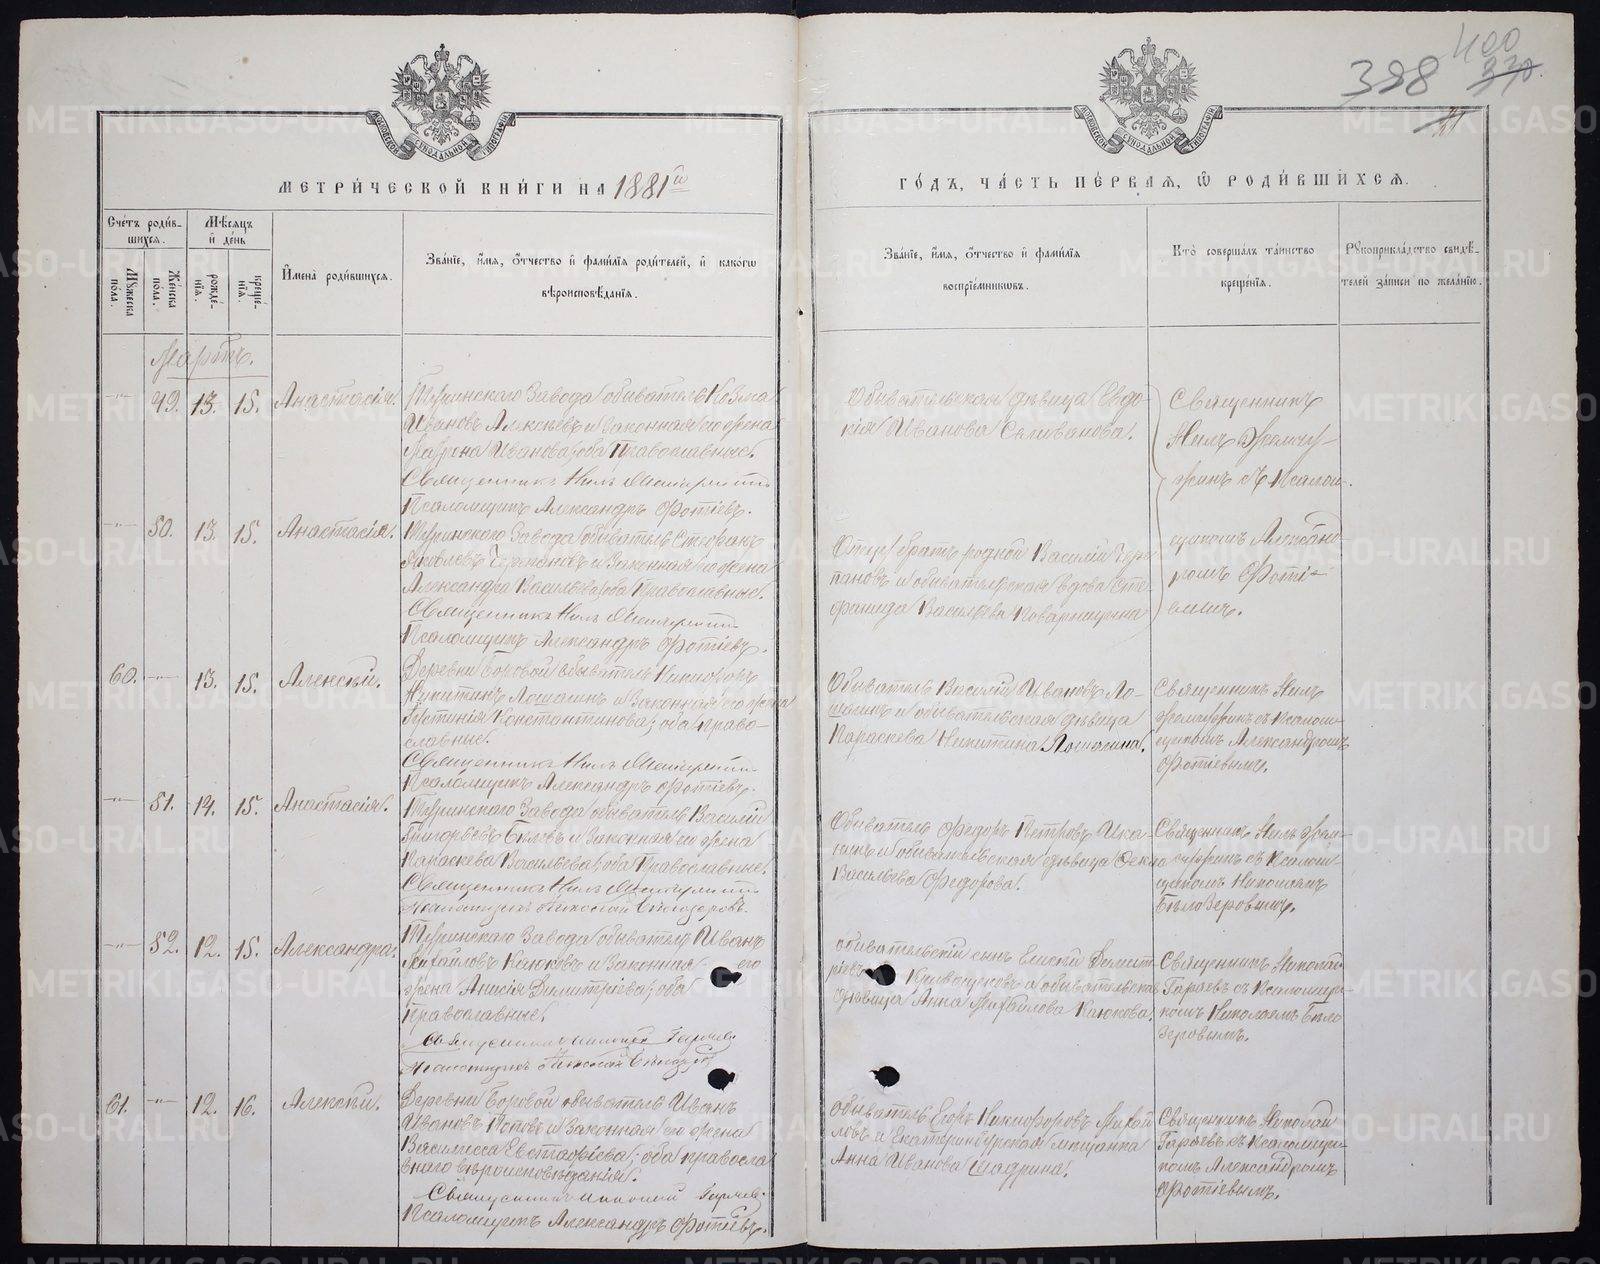 400
398 370
МОСКОВСКОЙ СѴНОДАЛЬНОЙ ТИПОГРАФІИ
МОСКОВСКОЙ СѴНОДАЛЬНОЙ ТИПОГРАФІИ
МЕТРИ́ЧЕСКОЙ КНИ́ГИ НА 1881й
ГО́ДЪ, ЧА́СТЬ ПЕ́РВАЯ, Ѡ РОДИ́ВШИХСЯ.
Сче́тъ роди́в-
шихся.
Мꙋжеска по́ла.
Же́нска по́ла.
Мѣсяцъ
и де́нь
рожде́-
нїя.
креще́-
нїя.
Имена̀ роди́вшихся.
Зва́нїе, и́мя, о́тчество и фами́лїя роди́телей, и како́гѡ
вѣроисповѣ́данїя.
Зва́нїе, и́мя, о́тчество и фами́лїя
воспрїе́мниковъ.
Кто̀ соверша́лъ та́инство
креще́нїя.
Рꙋкоприкла́дство свидѣ́-
телей за́писи по жела́нїю.
Мартъ.
-"- 49. 13. 15. Анастасія.
Туринскаго Завода обыватель Козма
Ивановъ Алексѣевъ и законная его жена
Ивановa; оба Православные.
Священникъ Нилъ
Псаломщикъ Александръ Фотіевъ.
Обывательская дѣвица Евдо-
кія Иванова Селиванова.
Священникъ
Нилъ Жемчу-
жинъ съ Псалом-
щикомъ Александ-
ромъ Фоті-
евымъ.
-"- 50. 13. 15. Анастасія.
Туринскаго Завода обыватель Стефанъ
Яковлевъ Черепановъ и законная его жена
Александра Васильева; оба Православные.
Священникъ Нилъ
Псаломщикъ Александръ Фотіевъ.
братъ родной Василій Чере-
пановъ и обывательская вдова Сте-
фанида Васильева
60. -"- 13. 15. Алексѣй.
Деревни Боровой обыватель Никифоръ
Никитинъ Лошагинъ и законная его жена
Іустинія Константинова; оба право-
славные.
Священникъ Нилъ
Псаломщикъ Александръ Фотіевъ.
Обыватель Василій Ивановъ Ло-
шагинъ и обывательская дѣвица
Параскева Никитина Лошагина.
Священникъ Нилъ
Жемчужинъ съ Псалом-
щикомъ Александромъ
Фотіевымъ.
-"- 51. 14. 15. Анастасія.
Туринскаго Завода обыватель Василій
Григорьевъ Бѣлевъ и законная его жена
Параскева Васильева; оба Православные.
Священникъ Нилъ
Псаломщикъ Николай Бѣлозеровъ.
Обыватель Федоръ Петровъ
и обывательская дѣвица Фекла
Васильева Федорова.
Священникъ Нилъ Жем-
чужинъ съ Псалом-
щикомъ Николаемъ
Бѣлозеровымъ.
-"- 52. 12. 15. Александра.
Туринскаго Завода обыватель Иванъ
Михайловъ Каюковъ и законная его
жена Анисія Димитріева; оба
Православные.
Священникъ Николай Гаряевъ
Псаломщикъ Николай Бѣлозеровъ
Обывательскій сынъ Димит-
ріевъ Кривощековъ и обывательская
дѣвица Анна Михайлова Каюкова.
Священникъ Николай
Гаряевъ съ Псаломщи-
комъ Николаемъ Бѣло-
зеровымъ.
61. -"- 12. 16. Алексѣй.
Деревни Боровой обыватель Иванъ
Ивановъ Поповъ и законная его жена
Василисса Евстафіева; оба правосла-
внаго вѣроисповѣданія.
Священникъ Николай Гаряевъ.
Псаломщикъ Александръ Фотіевъ.
Обыватель Егоръ Никифоровъ Михай-
ловъ и Екатеринбургская мѣщанка
Анна Иванова Шадрина.
Священникъ Николай
Гаряевъ съ Псаломщи-
комъ Александромъ
Фотіевымъ.
METRIKI.GASO-URAL.RU